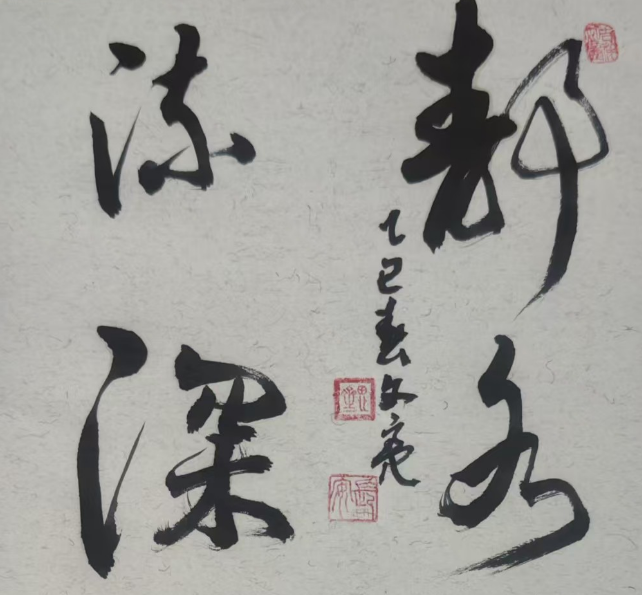 静水
流深
乙巳春文亮